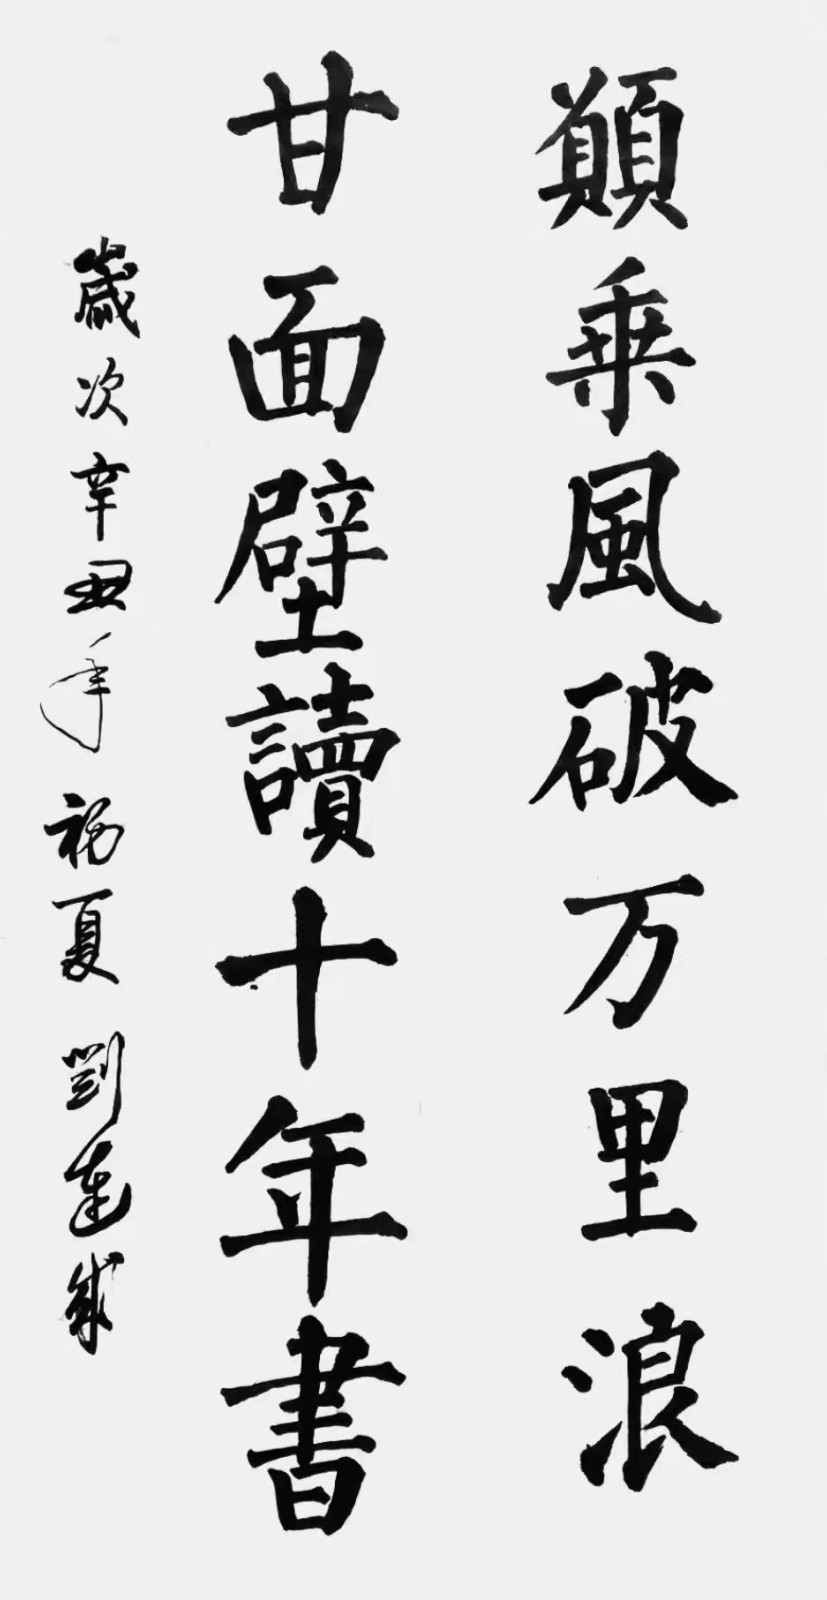 願乘風破万里浪
甘面壁讀十年書
歲次辛丑年初夏劉連成